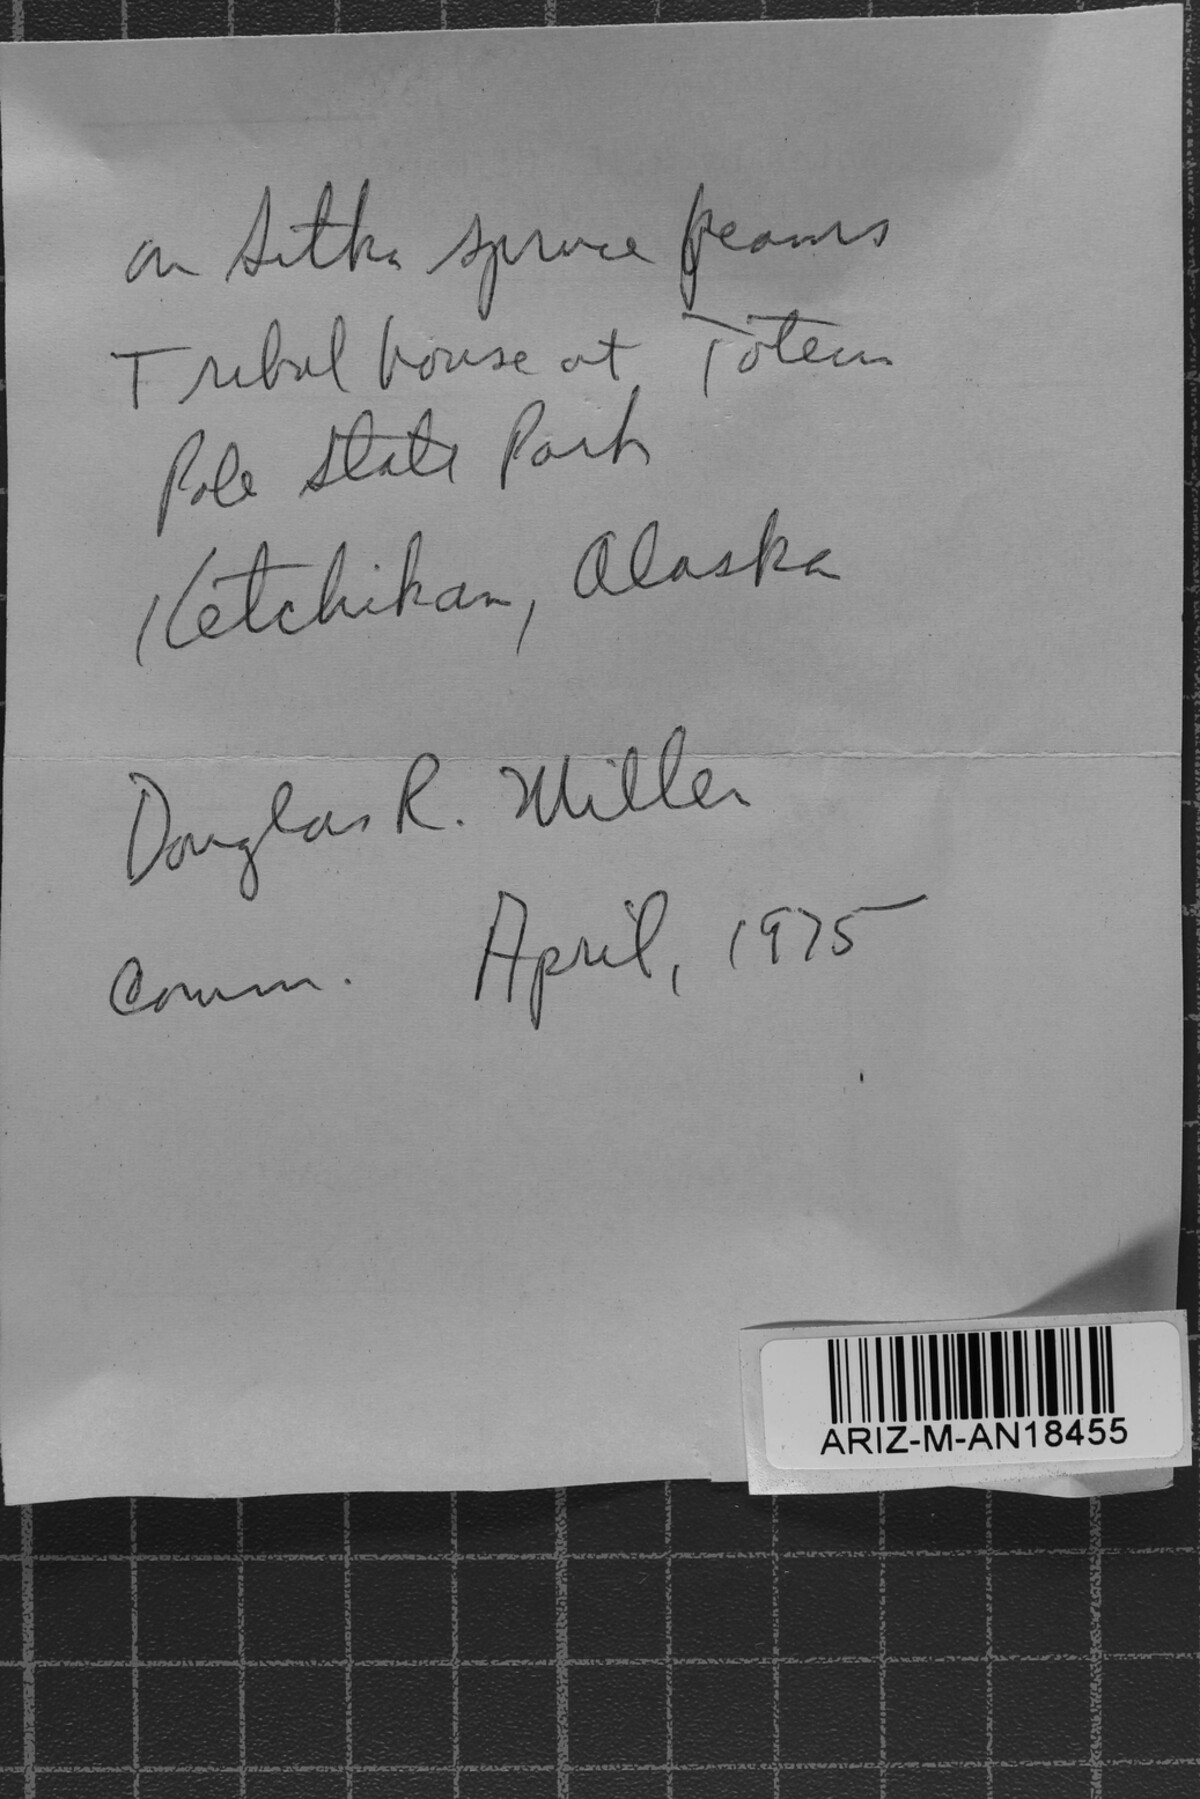 on Sitka spruce beams
Tribal house at Totem
Pole State Park
Ketchikan, Alaska
Douglas R. Miller
Comm. April, 1975
ARIZ-M-AN18455